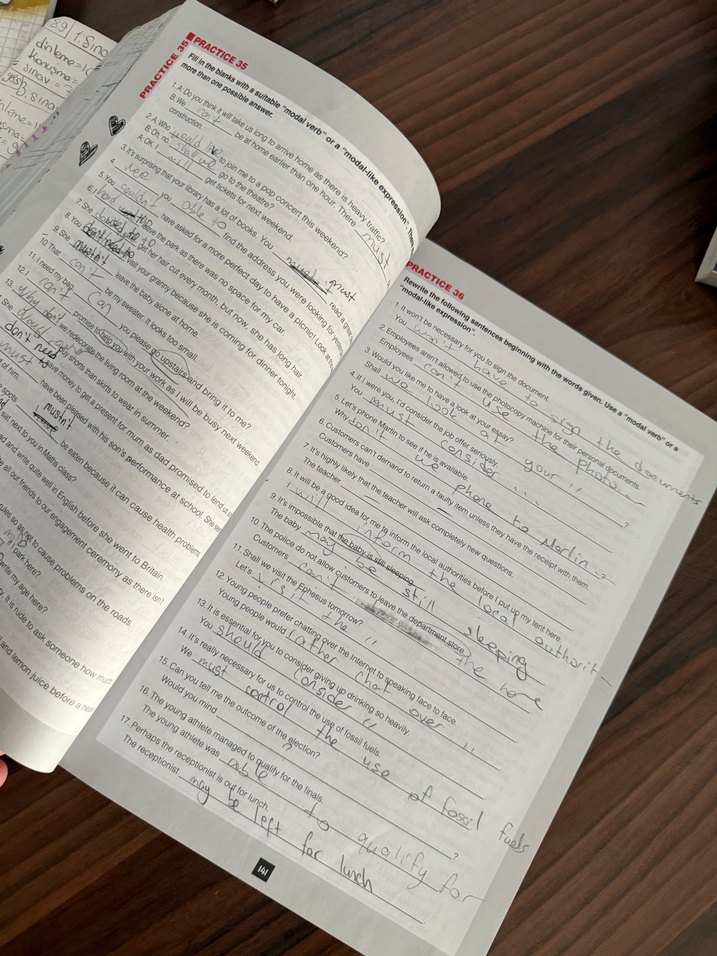 89 1. Sınav
dinleme =
konuşma =
PRACTICE 35
PRACTICE 35
Fill in the blanks with a suitable "modal verb" or a "modal-like expression". There
more than one possible answer.
1. A: Do you think it will take us long to arrive home as there is heavy traffic?
B: We can't be at home earlier than one hour. There must
construction.
2. A: Who would like to join me to a pop concert this weekend?
B: Oh, no. go to the theatre?
A: OK. I will get tickets for next weekend.
3. It's surprising that your library has a lot of books. You must read a great
4. you able to find the address you were looking for
5. You couldn't have asked for a more perfect day to have a picnic! Look at
6. I had to leave the park as there was no space for my car.
7. She used to get her hair cut every month, but now, she has long hair.
8. You visit your granny because she is coming for dinner tonight.
9. She mustn't leave the baby alone at home.
10. That can't be my sweater. It looks too small.
11. I need my bag. Can you please go upstairs and bring it to me?
12. I can't promise to help you with your work as I will be busy next weekend.
13. Why don't we redecorate the living room at the weekend?
buy shorts than skirts to wear in summer.
don't need money to get a present for mum as dad promised to lend us
must have been pleased with his son's performance at school. She
of him.
spots mustn't be eaten because it can cause health problems
sit next to you in Maths class?
and write quite well in English before she went to Britain.
all our friends to our engagement ceremony as there isn't
rules so as not to cause problems on the roads.
park here?
my age here?
It is rude to ask someone how much
and lemon juice before a
PRACTICE 36
Rewrite the following sentences beginning with the words given. Use a "modal verb" or a
"modal-like expression".
1. It won't be necessary for you to sign the document.
You won't have to sign the documents
2. Employees aren't allowed to use the photocopy machine for their personal documents.
Employees can't use the photo
3. Would you like me to have a look at your essay?
Shall we look at your " ?
4. If I were you, I'd consider the job offer seriously.
You must consider ...
5. Let's phone Martin to see if he is available.
Why don't we phone to Martin ?
6. Customers can't demand to return a faulty item unless they have the receipt with them.
Customers have
7. It's highly likely that the teacher will ask completely new questions.
The teacher
8. It will be a good idea for me to inform the local authorities before I put up my tent here.
I will inform the local authorit
9. It's impossible that the baby is still sleeping.
The baby may be still sleeping
10. The police do not allow customers to leave the department store.
Customers can't the here
11. Shall we visit the Ephesus tomorrow?
Let's visit the "
12. Young people prefer chatting over the Internet to speaking face to face.
Young people would rather chat over "
13. It is essential for you to consider giving up drinking so heavily.
You should consider "
14. It's really necessary for us to control the use of fossil fuels.
We must control the use of fossil fuels
15. Can you tell me the outcome of the election?
Would you mind ?
16. The young athlete managed to qualify for the finals.
The young athlete was able to qualify for
17. Perhaps the receptionist is out for lunch.
The receptionist may be left for lunch
141